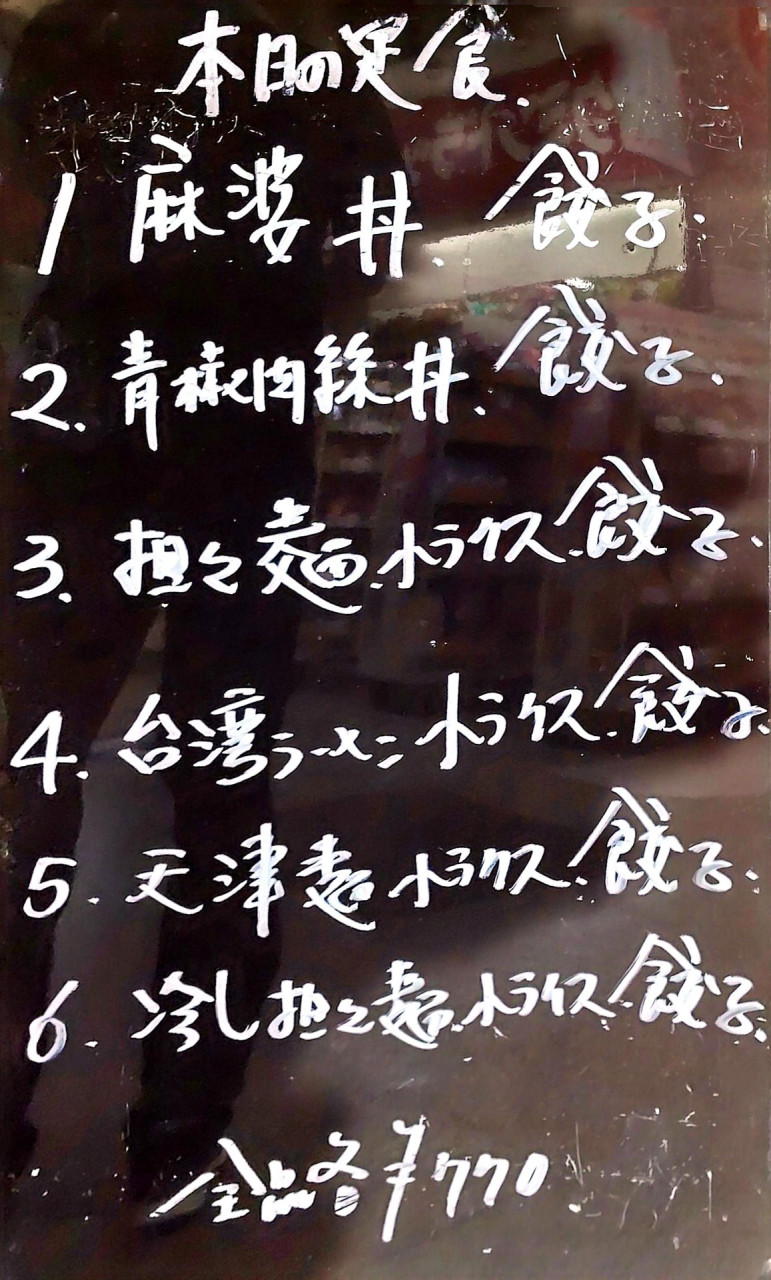 本日の定食.
1 麻婆丼、餃子.
2. 青椒肉絲丼、餃子.
3. 担々麺.小ライス.餃子.
4. 台湾ラーメン 小ライス.餃子.
5. 天津麺 小ライス.餃子.
6. 冷し担々麺.小ライス.餃子.
全品各¥770